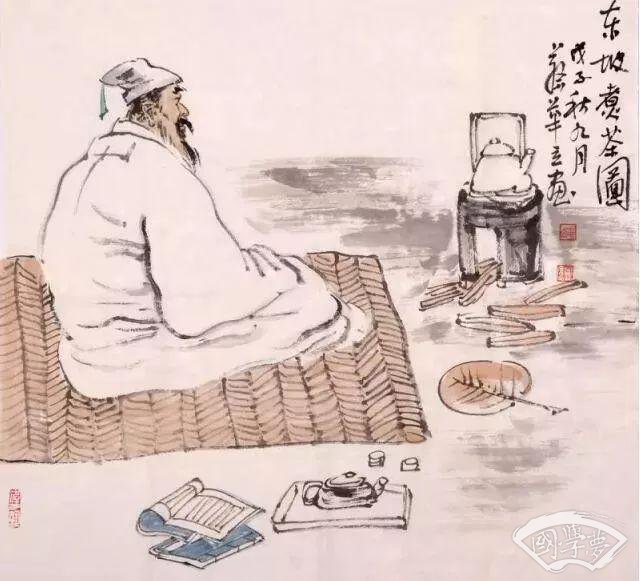 东坡煮茶圖
戊子秋九月
華立画
國學夢